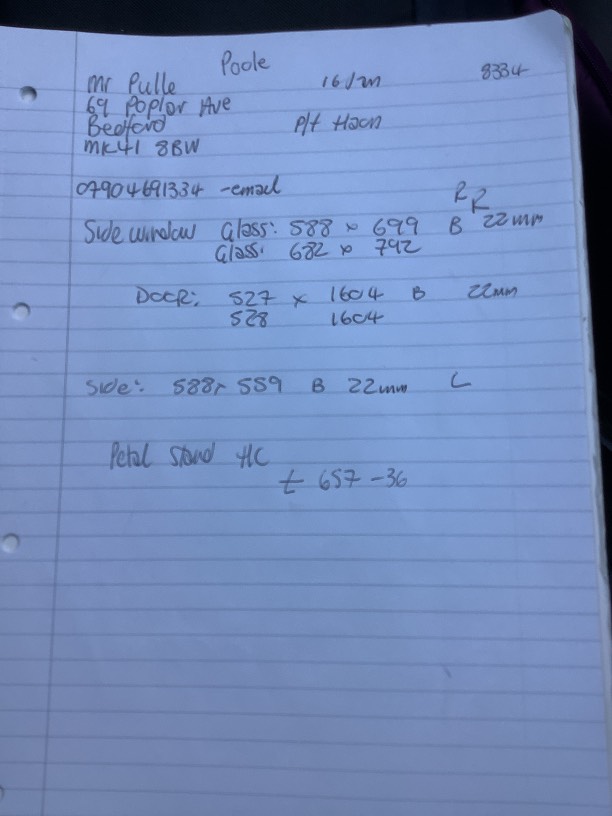 Poole
Mr Pulle 16/m 8334
69 Poplor Ave
Bedford P/t Hacn
MK41 8BW
07904691334 -email
R R
Side window Glass: 588 x 699 B 22mm
Glass: 682 x 792
DOOR: 527 x 1604 B 22mm
528 1604
Side: 588x 559 B 22mm L
Petal Stand HC
£ 657-36